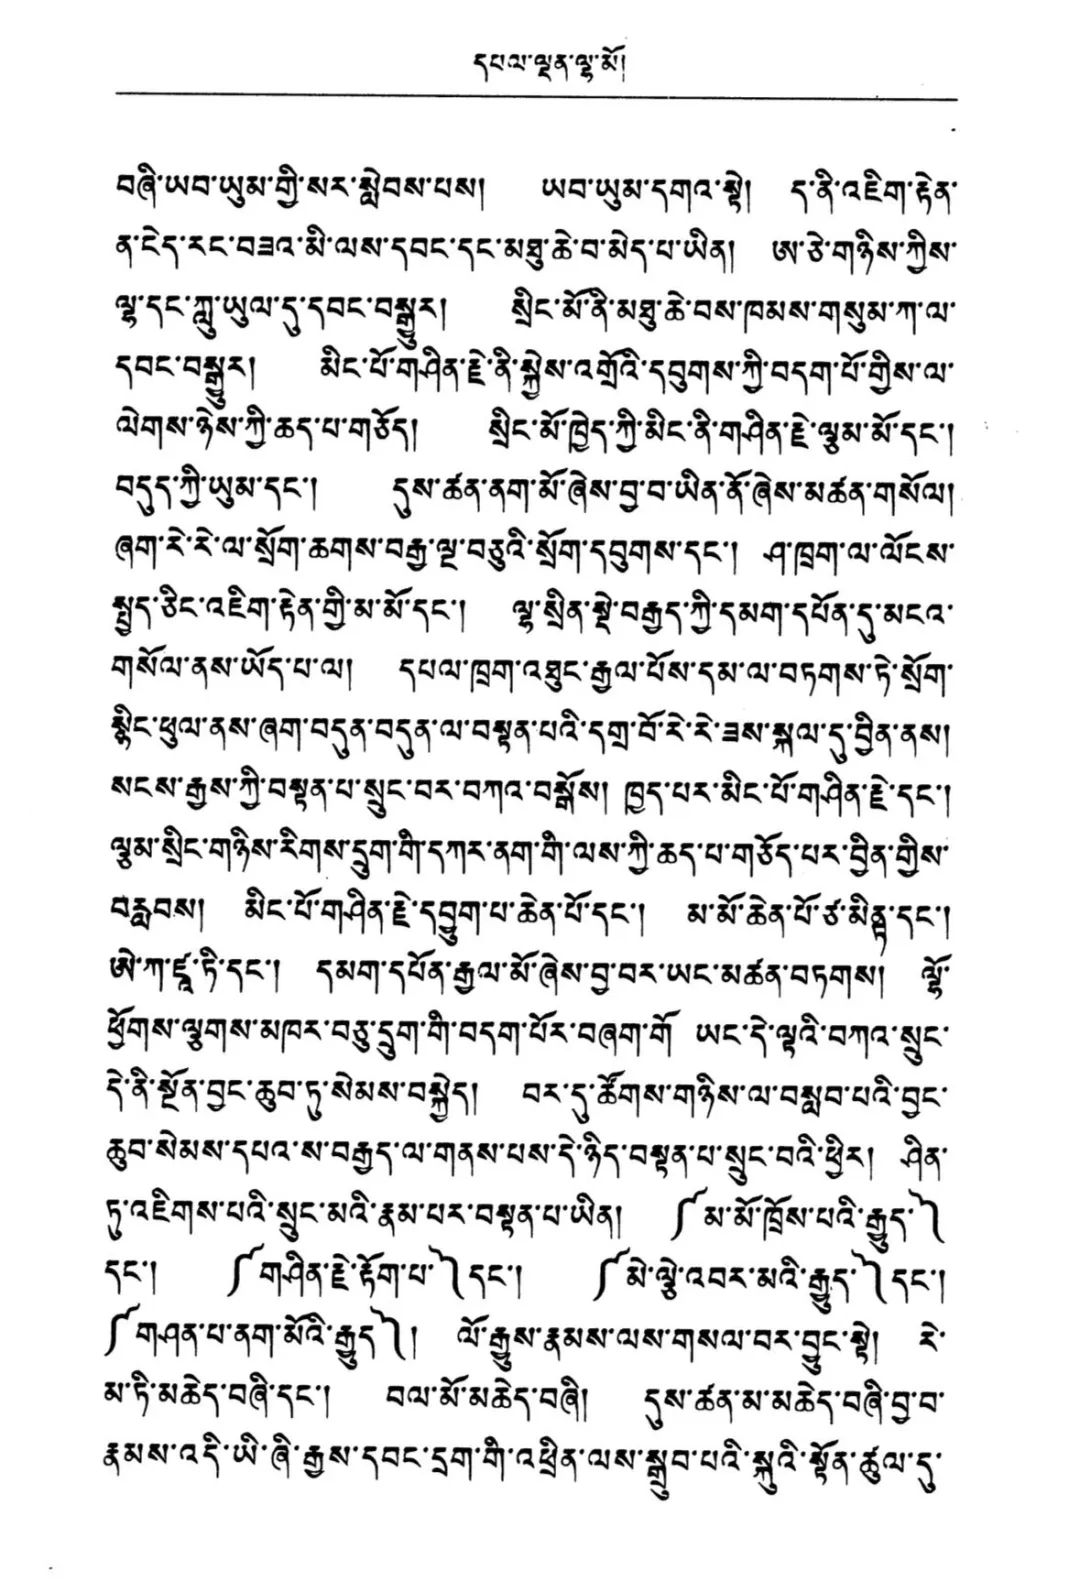 དཔལ་ལྡན་ལྷ་མོ།
བཞི་ཡབ་ཡུམ་གྱི་སར་སླེབས་པས། ཡབ་ཡུམ་དགའ་སྟེ། ད་ནི་འཇིག་རྟེན་
ན་ངེད་རང་བཟའ་མི་ལས་དབང་དང་མཐུ་ཆེ་བ་མེད་པ་ཡིན། ཨ་ཙེ་གཉིས་ཀྱིས་
ལྷ་དང་ཀླུ་ཡུལ་དུ་དབང་བསྒྱུར། སྲིང་མོ་ནི་མཐུ་ཆེ་བས་ཁམས་གསུམ་ཀ་ལ་
དབང་བསྒྱུར། མིང་པོ་གཤིན་རྗེ་ནི་སྐྱེས་འགྲོའི་དབུགས་ཀྱི་བདག་པོ་གྱིས་ལ་
ལེགས་ཉེས་ཀྱི་ཆད་པ་གཅོད། སྲིང་མོ་ཁྱེད་ཀྱི་མིང་ནི་གཤིན་རྗེ་ལྕམ་མོ་དང་།
བདུད་ཀྱི་ཡུམ་དང་། དུས་ཚན་ནག་མོ་ཞེས་བྱ་བ་ཡིན་ནོ་ཞེས་མཚན་གསོལ།
ཞག་རེ་རེ་ལ་སྲོག་ཆགས་བརྒྱ་ལྔ་བཅུའི་སྲོག་དབུགས་དང་། ཤ་ཁྲག་ལ་ལོངས་
སྤྱད་ཅིང་འཇིག་རྟེན་གྱི་མ་མོ་དང་། ལྷ་སྲིན་སྡེ་བརྒྱད་ཀྱི་དམག་དཔོན་དུ་མངའ་
གསོལ་ནས་ཡོད་པ་ལ། དཔལ་ཁྲག་འཐུང་རྒྱལ་པོས་དམ་ལ་བཏགས་ཏེ་སྲོག་
སྙིང་ཕུལ་ནས་ཞག་བདུན་བདུན་ལ་བསྟན་པའི་དགྲ་བོ་རེ་རེ་ཟས་སྐལ་དུ་བྱིན་ནས།
སངས་རྒྱས་ཀྱི་བསྟན་པ་སྲུང་བར་བཀའ་བསྒོས། ཁྱད་པར་མིང་པོ་གཤིན་རྗེ་དང་།
ལྕམ་སྲིང་གཉིས་རིགས་དྲུག་གི་དཀར་ནག་གི་ལས་ཀྱི་ཆད་པ་གཅོད་པར་བྱིན་གྱིས་
བརླབས། མིང་པོ་གཤིན་རྗེ་དབྱུག་པ་ཆེན་པོ་དང་། མ་མོ་ཆེན་པོ་ཙ་མིནྡྷ་དང་།
ཨེ་ཀ་ཛཱ་ཏི་དང་། དམག་དཔོན་རྒྱལ་མོ་ཞེས་བྱ་བར་ཡང་མཚན་བཏགས། ལྷོ་
ཕྱོགས་ལྕགས་མཁར་བཅུ་དྲུག་གི་བདག་པོར་བཞག་གོ ཡང་དེ་ལྟའི་བཀའ་སྲུང་
དེ་ནི་སྔོན་བྱང་ཆུབ་ཏུ་སེམས་བསྐྱེད། བར་དུ་ཚོགས་གཉིས་ལ་བསླབ་པའི་བྱང་
ཆུབ་སེམས་དཔའ་ས་བརྒྱད་ལ་གནས་པས་དེ་ཉིད་བསྟན་པ་སྲུང་བའི་ཕྱིར། ཤིན་
ཏུ་འཇིགས་པའི་སྲུང་མའི་རྣམ་པར་བསྟན་པ་ཡིན། ༼མ་མོ་ཁྲོས་པའི་རྒྱུད་༽
དང་། ༼གཤིན་རྗེ་རྟོག་པ་༽དང་། ༼མེ་ལྕེ་འབར་མའི་རྒྱུད་༽དང་།
༼གཤན་པ་ནག་མོའི་རྒྱུད༽། ལོ་རྒྱུས་རྣམས་ལས་གསལ་བར་བྱུང་སྟེ། རེ་
མ་ཏི་མཆེད་བཞི་དང་། བལ་མོ་མཆེད་བཞི། དུས་ཚན་མ་མཆེད་བཞི་བྱ་བ་
རྣམས་འདི་ཡི་ཞི་རྒྱས་དབང་དྲག་གི་འཕྲིན་ལས་སྒྲུབ་པའི་སྐུའི་སྟོན་ཚུལ་དུ་